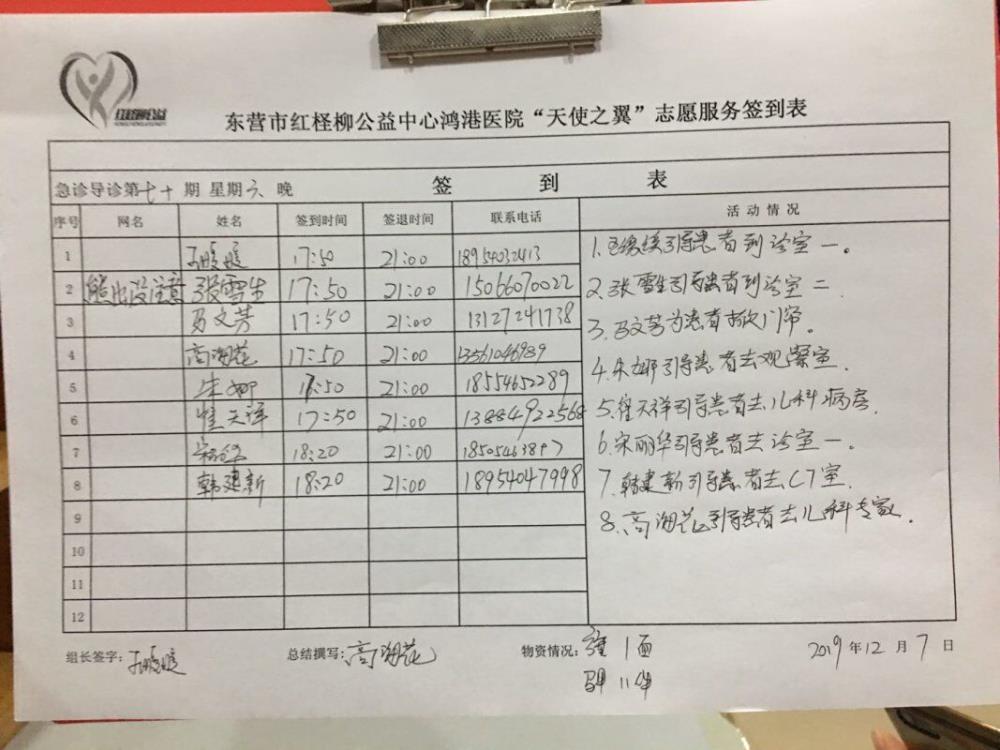 红柽柳公益
东营市红柽柳公益中心鸿港医院“天使之翼”志愿服务签到表
急诊导诊第七十期 星期六 晚 签到表
序号 网名 姓名 签到时间 签退时间 联系电话 活动情况
1 17:50 21:00 18954032413
2 熊出没注意 张雪生 17:50 21:00 15066070022
3 马文芳 17:50 21:00 13127241738
4 高海花 17:50 21:00 13561046989
5 朱娜 17:50 21:00 18554652289
6 崔天祥 17:50 21:00 13884922568
7 18:20 21:00
8 韩建新 18:20 21:00 18954047998
9
10
11
12
1. 引导患者到诊室一。
2. 张雪生引导患者到诊室二.
3. 马文芳为患者掀门帘。
4. 朱娜引导患者去观察室.
5. 崔天祥引导患者去儿科病房.
6. 宋丽华引导患者去诊室一.
7. 韩建新引导患者去CT室.
8. 高海花引导患者去儿科专家.
组长签字: 总结撰写: 高海花 物资情况: 1面 2019年12月7日
11件